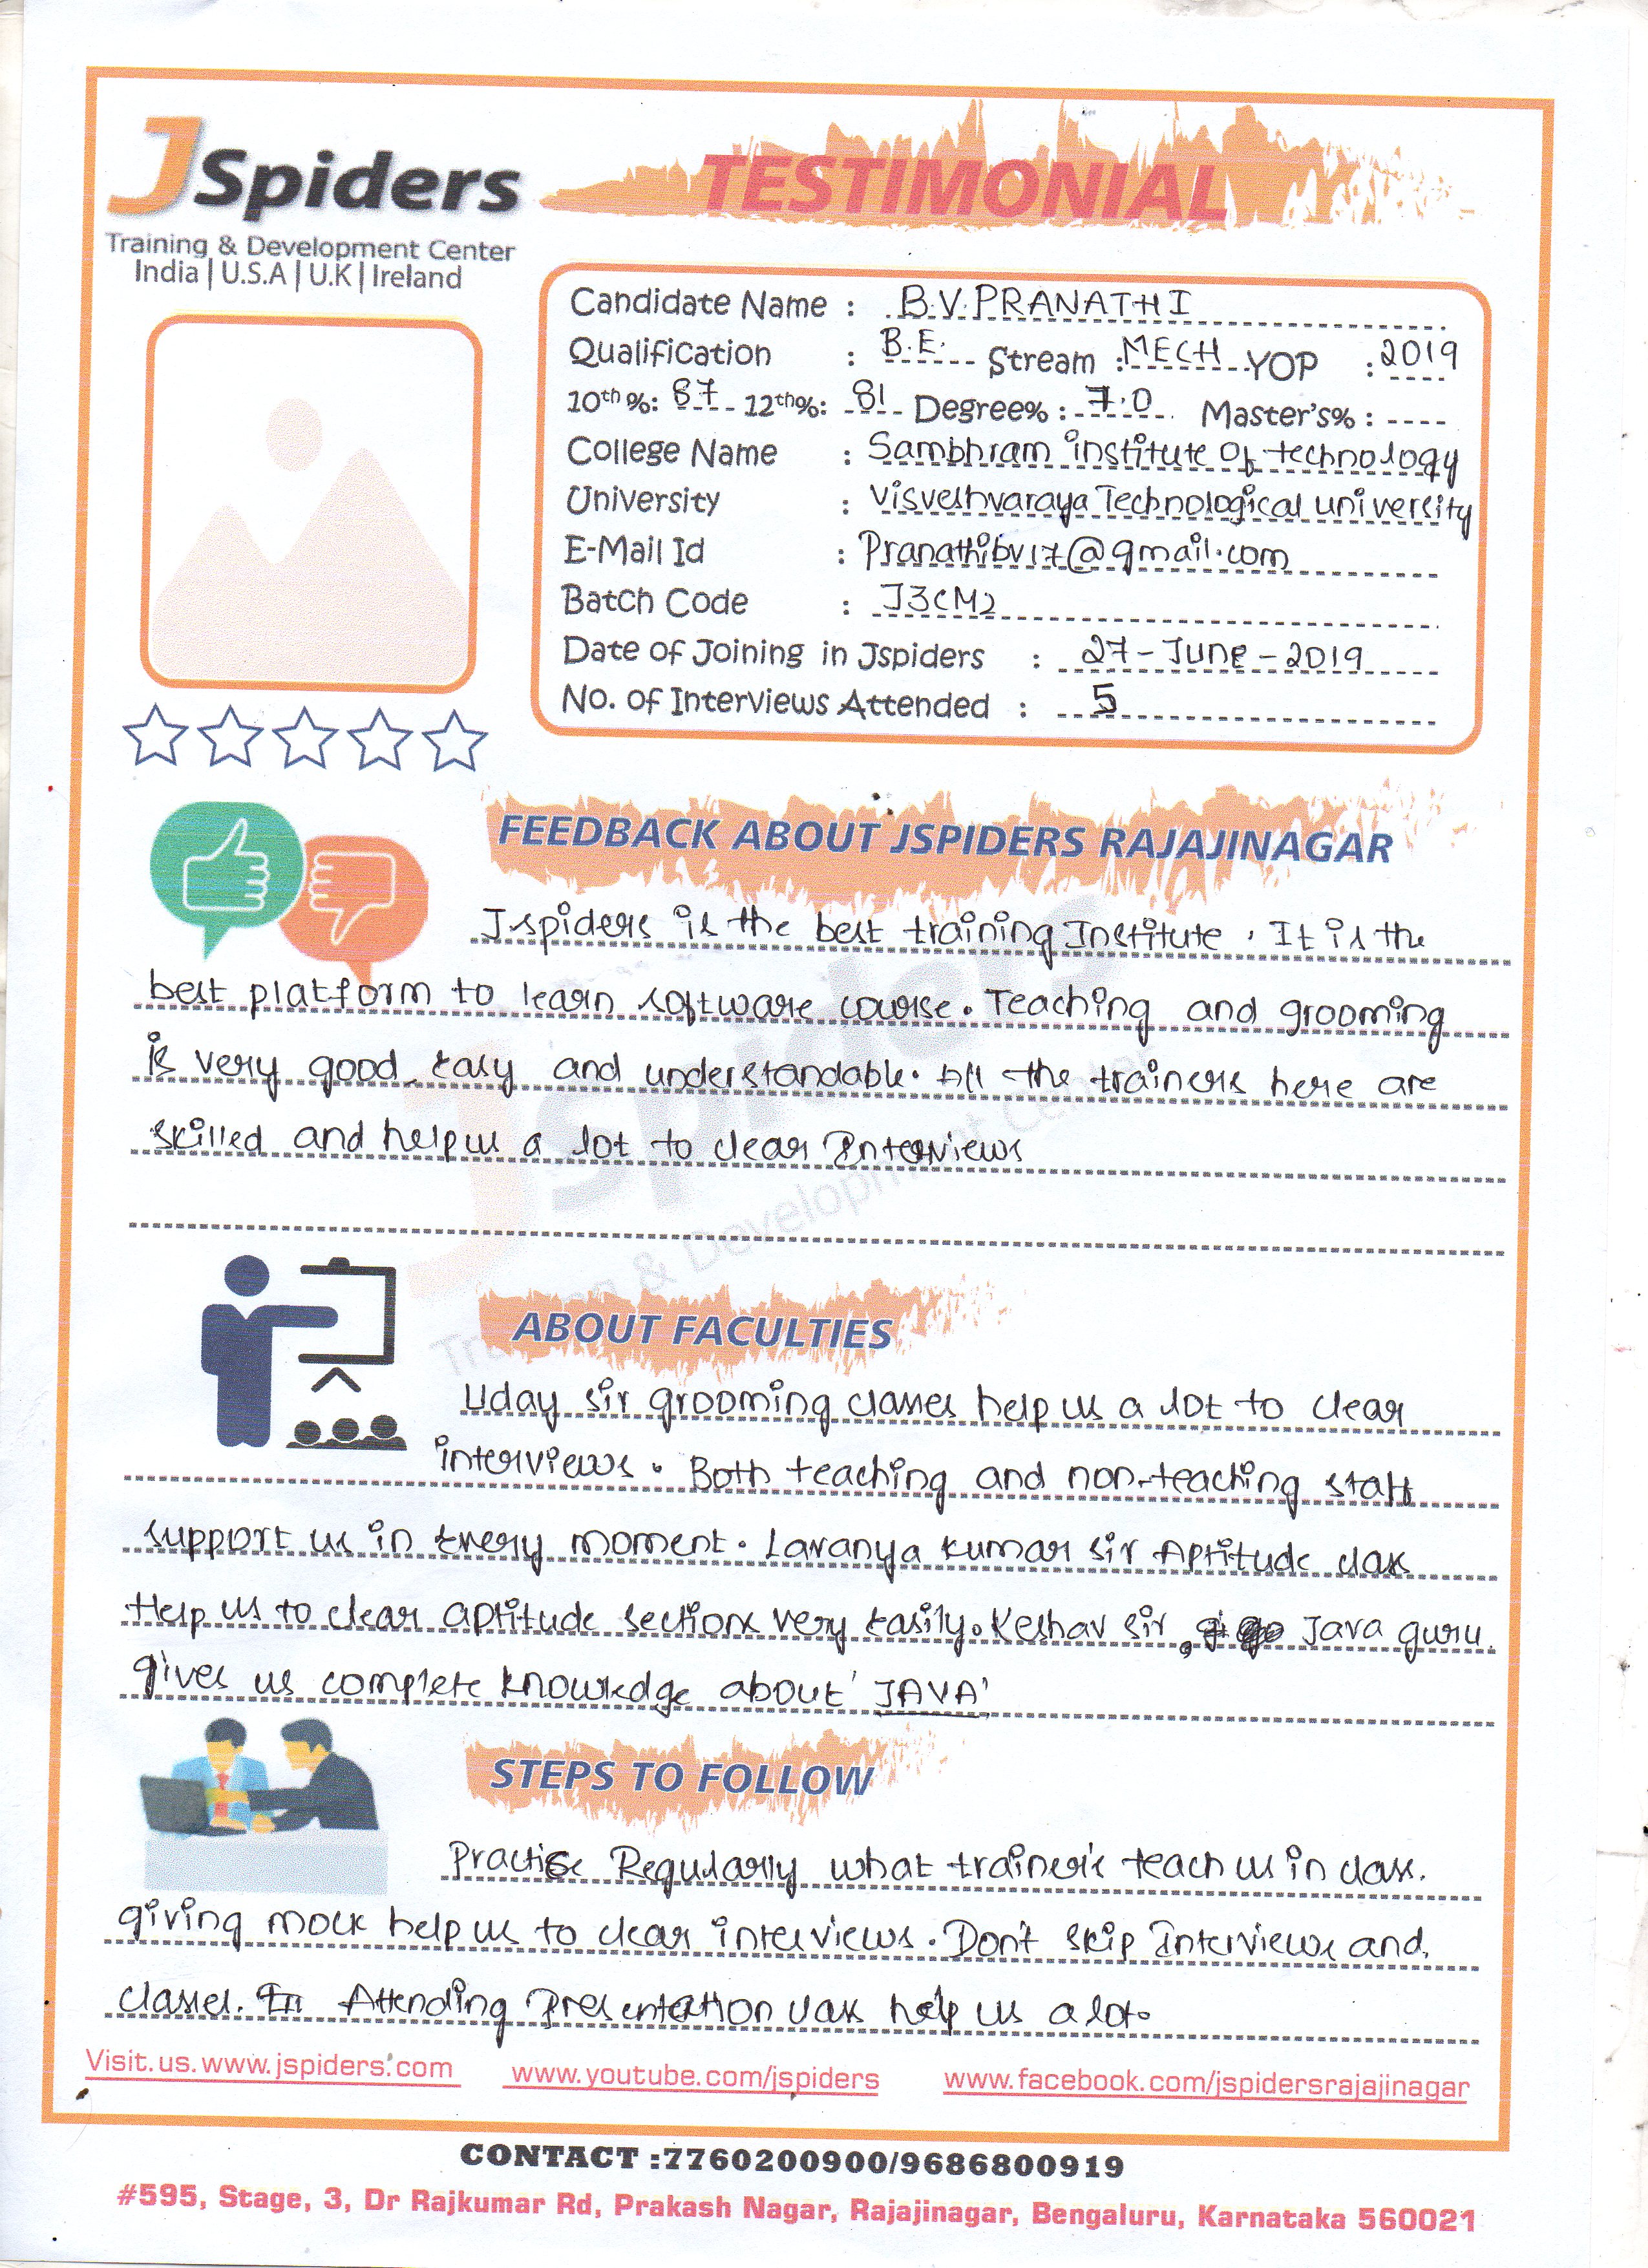 JSpiders
Training & Development Center
India | U.S.A | U.K | Ireland
TESTIMONIAL
Candidate Name : B.V.PRANATHI
Qualification : B.E. Stream : MECH YOP : 2019
10th %: 87 12th%: 81 Degree% : 7.0 Master's% :
College Name : Sambhram institute of technology
University : Visveshvaraya Technological university
E-Mail Id : Pranathibv17@gmail.com
Batch Code : J3CM2
Date of Joining in Jspiders : 27-June-2019
No. of Interviews Attended : 5
FEEDBACK ABOUT JSPIDERS RAJAJINAGAR
Jspiders is the best training Institute . It is the
best platform to learn software course. Teaching and grooming
is very good easy and understandable. All the trainers here are
skilled and help us a lot to clear Interviews
Jspiders
Training & Development Center
ABOUT FACULTIES
Uday sir grooming classes help us a lot to clear
interviews. Both teaching and non-teaching staff
support us in Every moment. Lavanya kumar sir Aptitude class
Help us to clear aptitude sections very easily. Keshav sir, Java guru.
gives us complete knowledge about 'JAVA'
STEPS TO FOLLOW
Practise Regularly what trainer's teach us in class.
giving mock help us to clear interviews. Don't skip Interviews and
classes. Attending Presentation class help us a lot.
Visit.us.www.jspiders.com www.youtube.com/jspiders www.facebook.com/jspidersrajajinagar
CONTACT :7760200900/9686800919
#595, Stage, 3, Dr Rajkumar Rd, Prakash Nagar, Rajajinagar, Bengaluru, Karnataka 560021